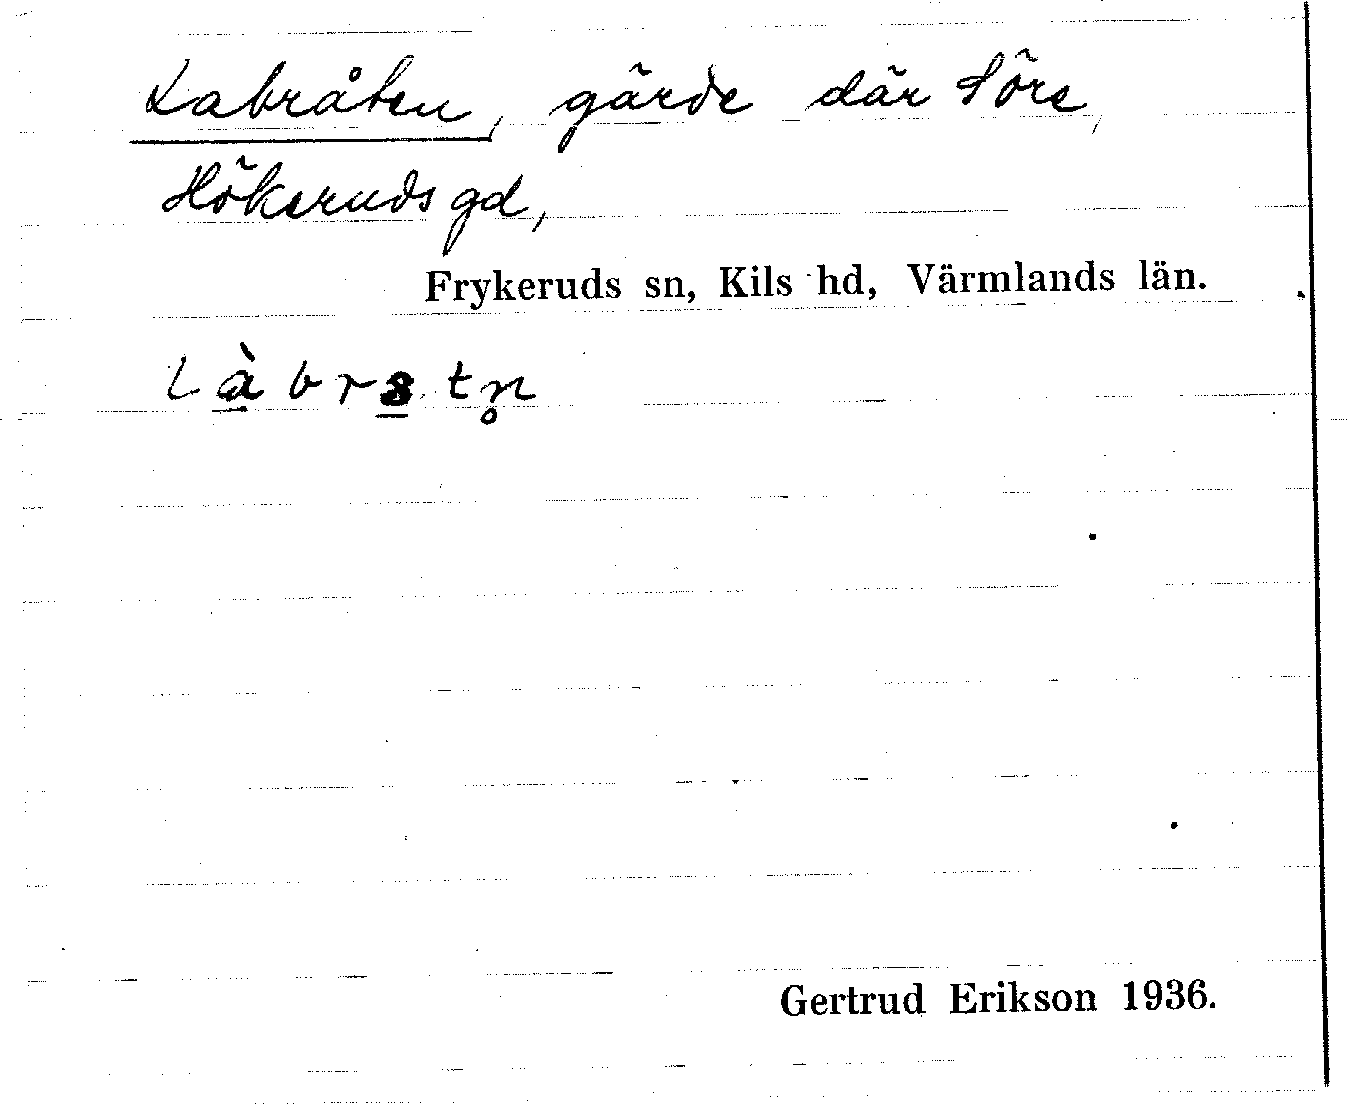 Labråten, gärde där söre,
Hökeruds gd,
Frykeruds sn, Kils hd, Värmlands län.
Gertrud Erikson 1936.